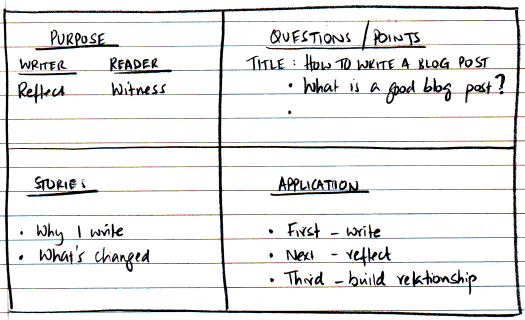 PURPOSE
WRITER READER
Reflect Witness
QUESTIONS / POINTS
TITLE : HOW TO WRITE A BLOG POST
• What is a good blog post?
•
STORIES
• Why I write
• What's changed
APPLICATION
• First - write
• Next - reflect
• Third - build relationship